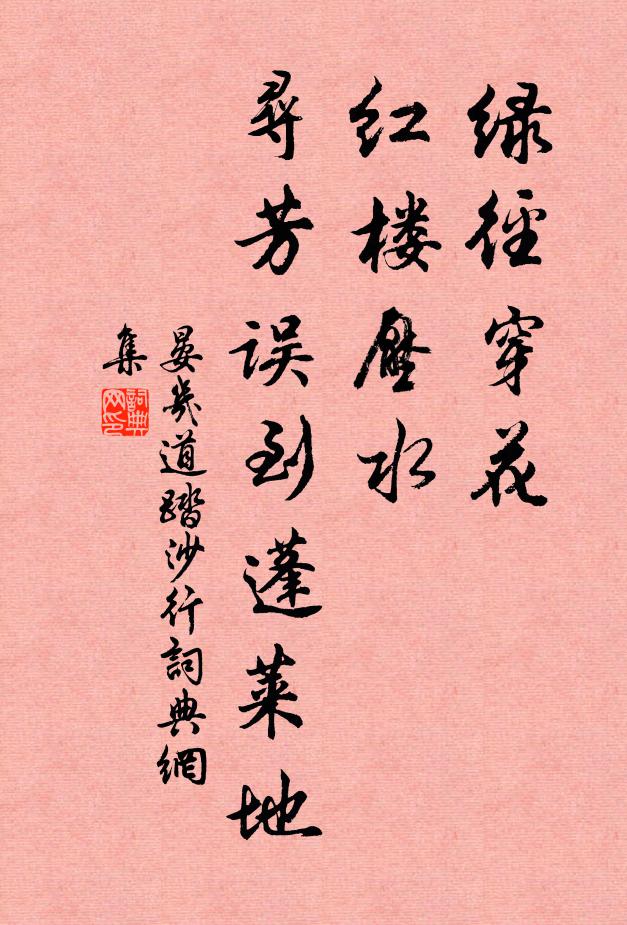 绿径穿花
红楼压水
寻芳误到蓬莱地
晏几道踏沙行词典網
集
詞典網印